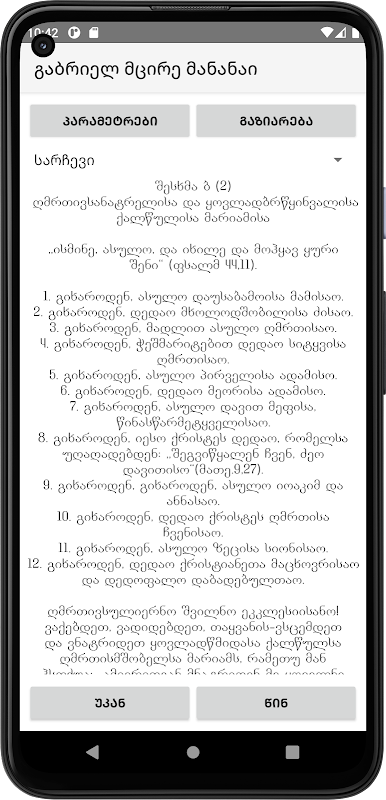 10:42
გაბრიელ მცირე მანანაი
ᲞᲐᲠᲐᲛᲔᲢᲠᲔᲑᲘ
ᲒᲐᲖᲘᲐᲠᲔᲑᲐ
სარჩევი
შესხმა ბ (2)
ღმრთივსანატრელისა და ყოვლადბრწყინვალისა
ქალწულისა მარიამისა
„ისმინე, ასულო, და იხილე და მოჰყავ ყური
შენი“ (ფსალმ 44,11).
1. გიხაროდენ, ასულო დაუსაბამოისა მამისაო.
2. გიხაროდენ, დედაო მხოლოდშობილისა ძისაო.
3. გიხაროდენ, მადლით ასულო ღმრთისაო.
4. გიხაროდენ, ჭეშმარიტებით დედაო სიტყვისა
ღმრთისაო.
5. გიხაროდენ, ასულო პირველისა ადამისო.
6. გიხაროდენ, დედაო მეორისა ადამისო.
7. გიხაროდენ, ასულო დავით მეფისა,
წინასწარმეტყველისაო.
8. გიხაროდენ, იესო ქრისტეს დედაო, რომელსა
უღაღადებდენ: „შეგვიწყალენ ჩვენ, ძეო
დავითისო“(მათე,9,27).
9. გიხაროდენ, გიხაროდენ, ასულო იოაკიმ და
ანნასაო.
10. გიხაროდენ, დედაო ქრისტეს ღმრთისა
ჩვენისაო.
11. გიხაროდენ, ასულო ზეცისა სიონისაო.
12. გიხაროდენ, დედაო ქრისტიანეთა მაცხოვრისაო
და დედოფალო დაბადებულთაო.
ღმრთივსულიერნო შვილნო ეკკლესიისანო!
ვაქებდეთ, ვადიდებდეთ, თაყვანის-ვსცემდეთ
და ვნატრიდეთ ყოვლადწმიდასა ქალწულსა
ღმრთისმშობელსა მარიამს, რამეთუ მან
ᲣᲙᲐᲜ
ᲬᲘᲜ